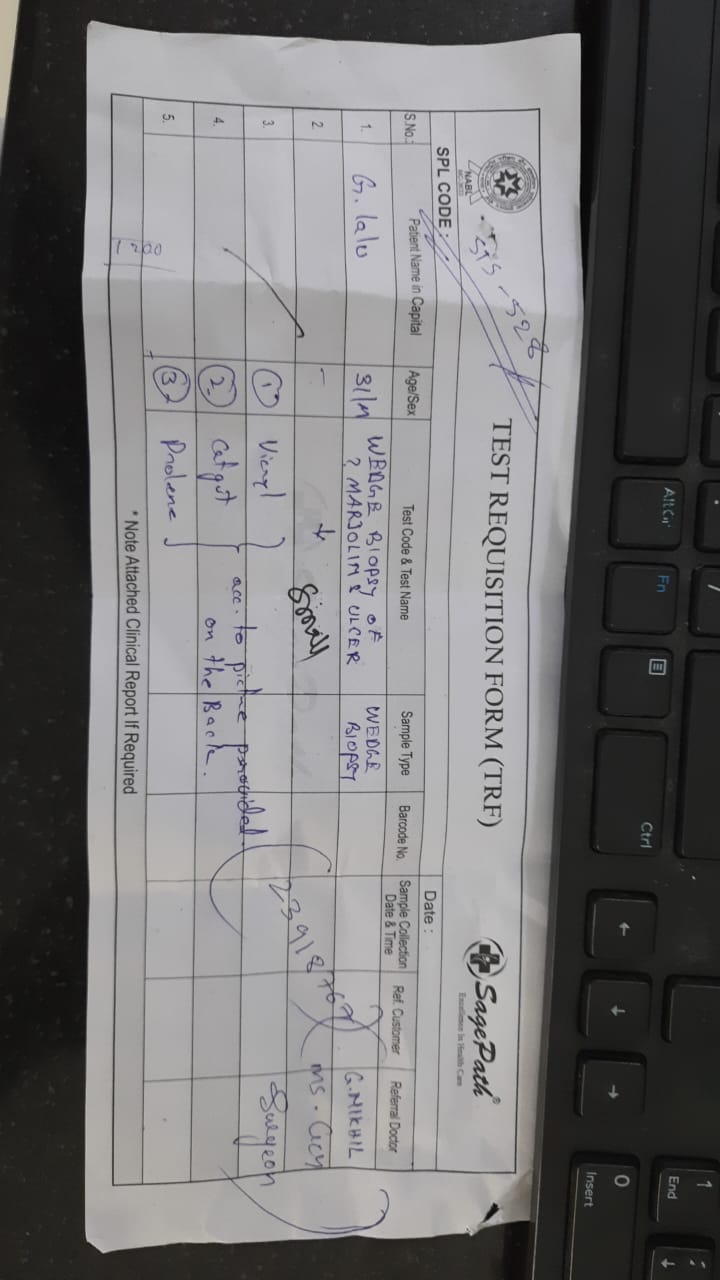 NABL
TEST REQUISITION FORM (TRF)
SagePath®
Excellence in Health Care
SPL CODE :
Date :
S.No.: Patient Name in Capital Age/Sex Test Code & Test Name Sample Type Barcode No. Sample Collection Date & Time Ref. Customer Referral Doctor
1. G. lalu 31/M WEDGE BIOPSY OF WEDGE G. NIKHIL
? MARJOLIN'S ULCER BIOPSY
2. Small MS.
3. ① Vicryl Surgeon
acc. to picture provided
4. ② Catgut on the Back.
5. ③ Prolene
* Note Attached Clinical Report If Required
Alt Gr
Fn
Ctrl
←
↓
→
1
End
0
Insert